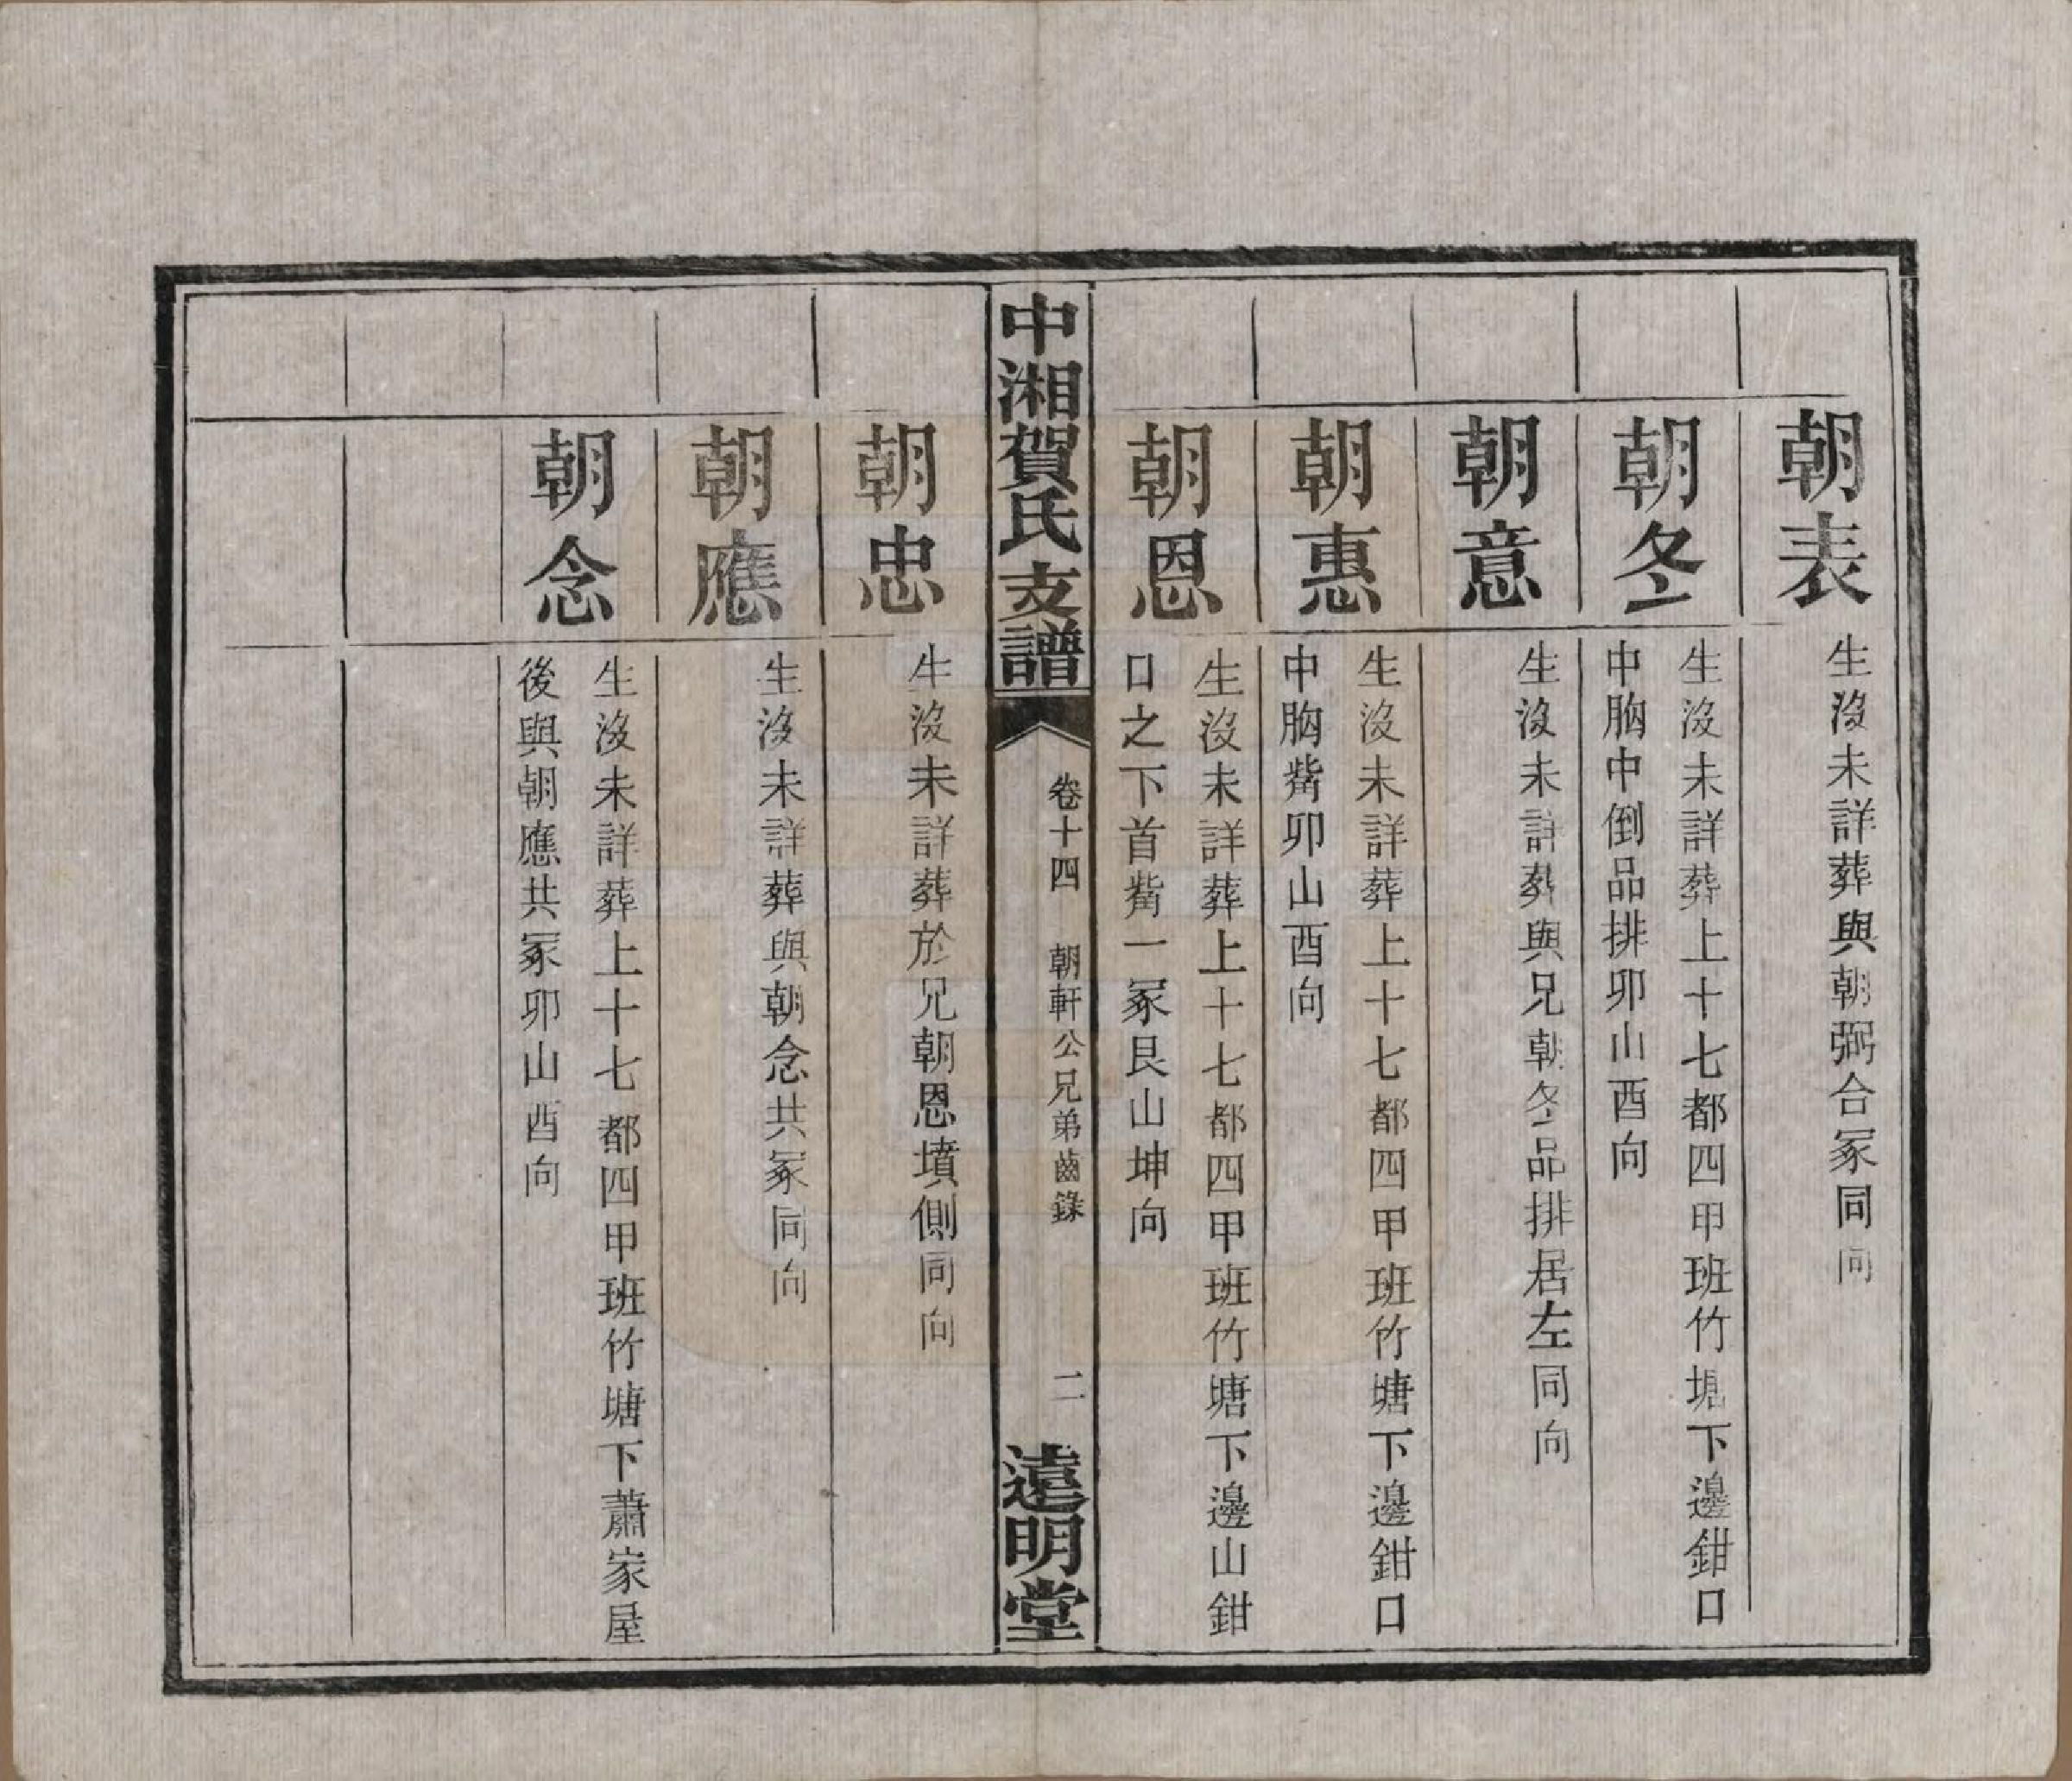 朝表
生沒未詳葬與朝弼合冢同向
朝冬
生沒未詳葬上十七都四甲班竹塘下邊鉗口
中胸中倒品排卯山酉向
朝意
生沒未詳葬與兄朝冬品排居左同向
朝惠
生沒未詳葬上十七都四甲班竹塘下邊鉗口
中胸觜卯山酉向
朝恩
生沒未詳葬上十七都四甲班竹塘下邊山鉗
口之下首觜一冢艮山坤向
中湘賀氏支譜
卷十四 朝軒公兄弟齒錄
二
遠明堂
朝忠
生沒未詳葬於兄朝恩墳側同向
朝應
生沒未詳葬與朝念共冢同向
朝念
生沒未詳葬上十七都四甲班竹塘下蕭家屋
後與朝應共冢卯山酉向